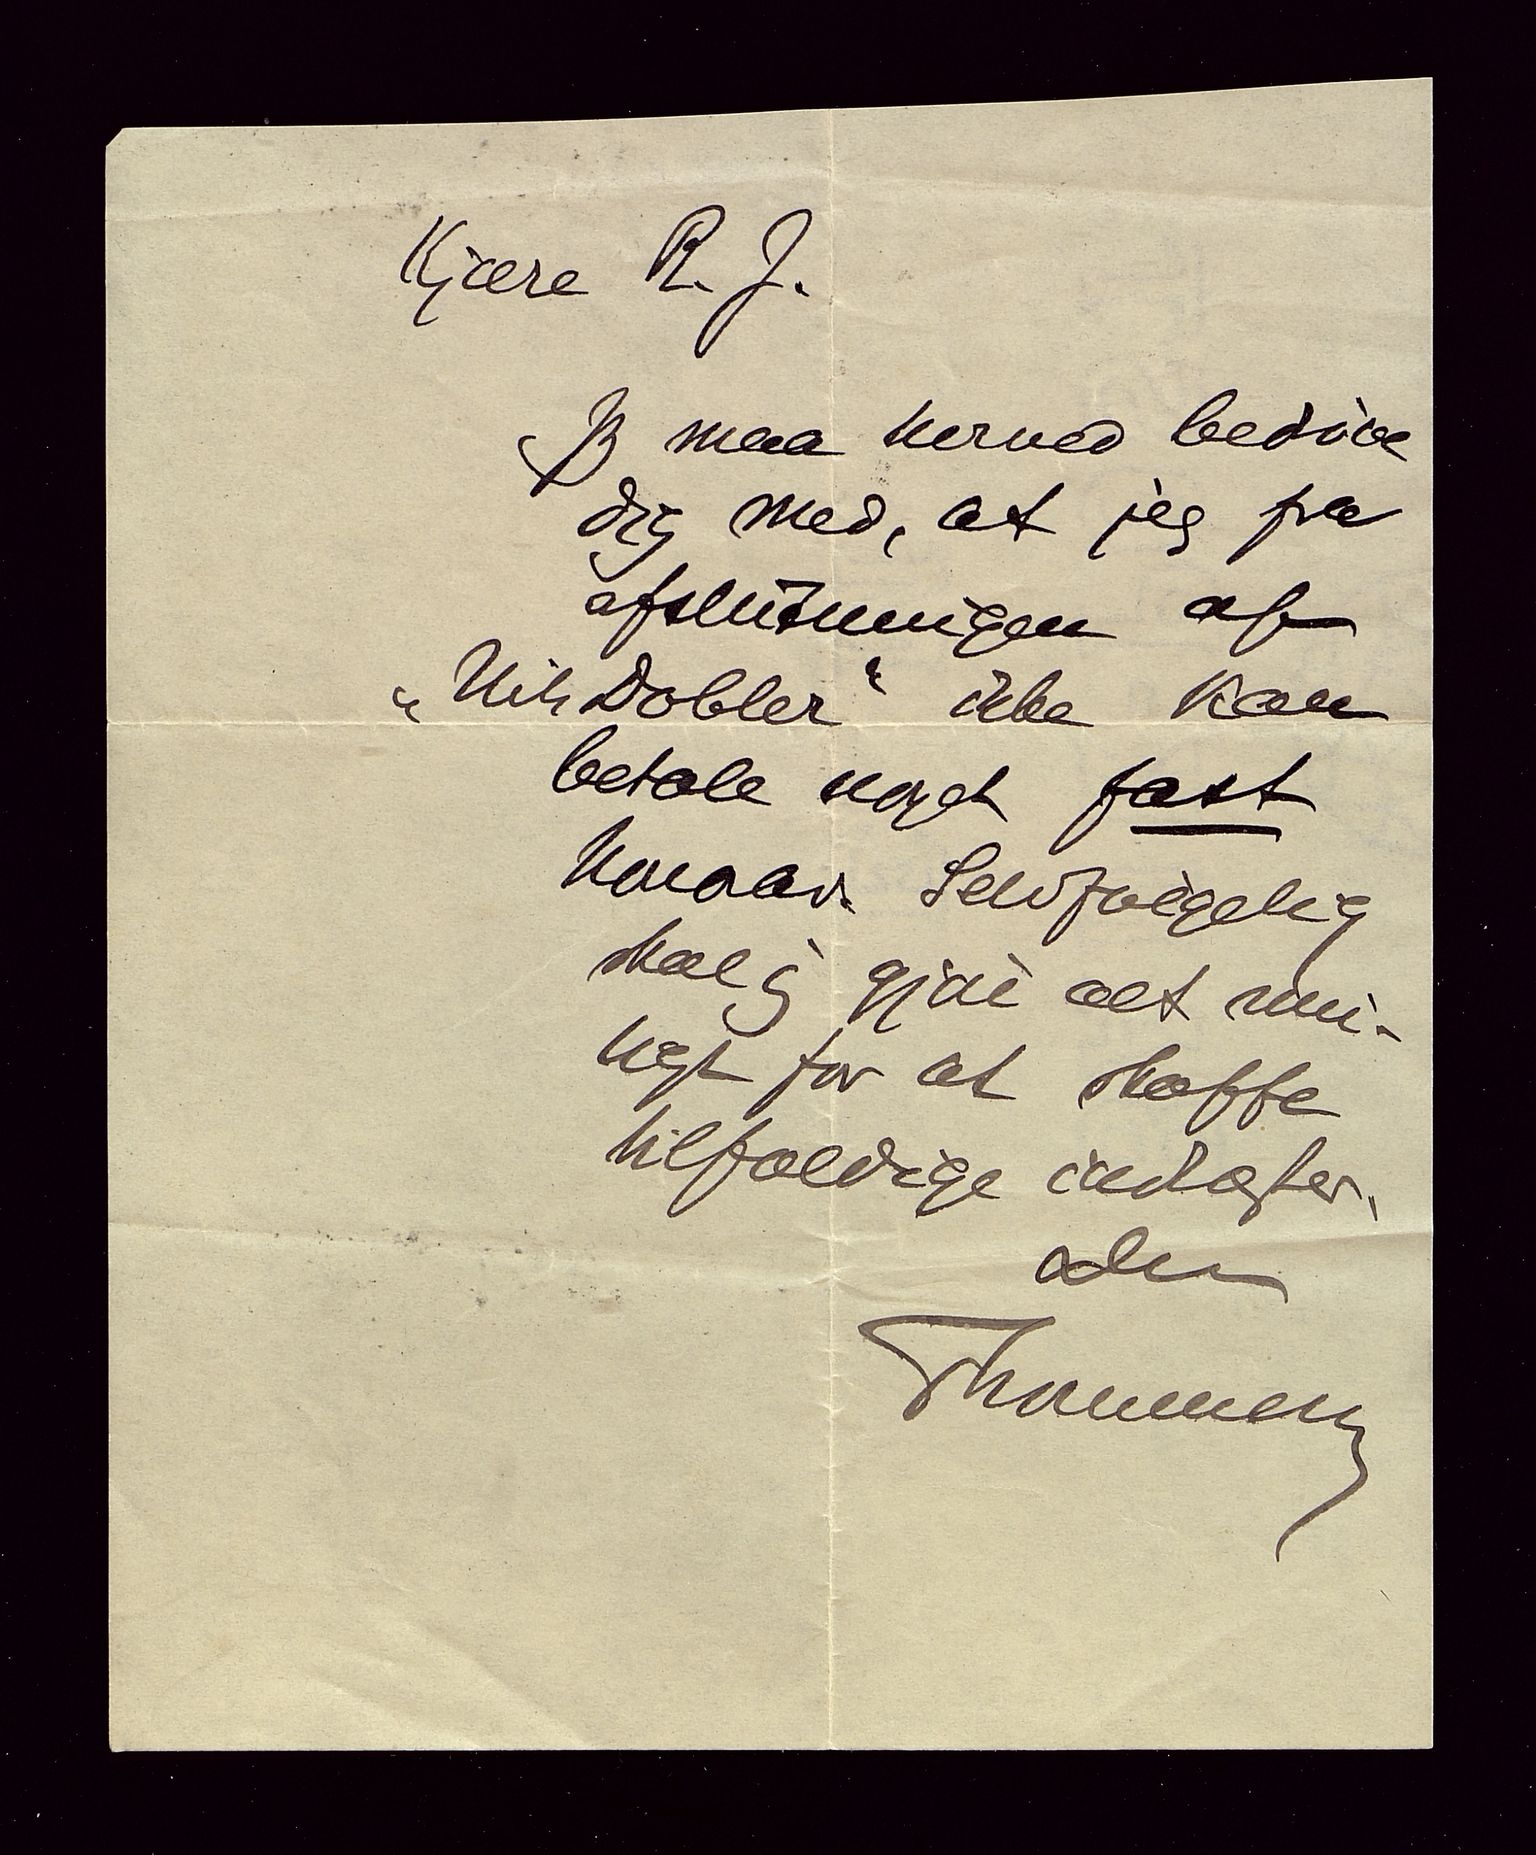 Kjære R. J.
Jeg maa herved bedrøve
dig med, at jeg fra
afslutningen af
"Nik Dobler" ikke kan
betale noget fast
honorar. Selvfølgelig
skal jeg gjøre alt mu-
ligt for at skaffe
tilfældige indtægter.
Din
Thommessen